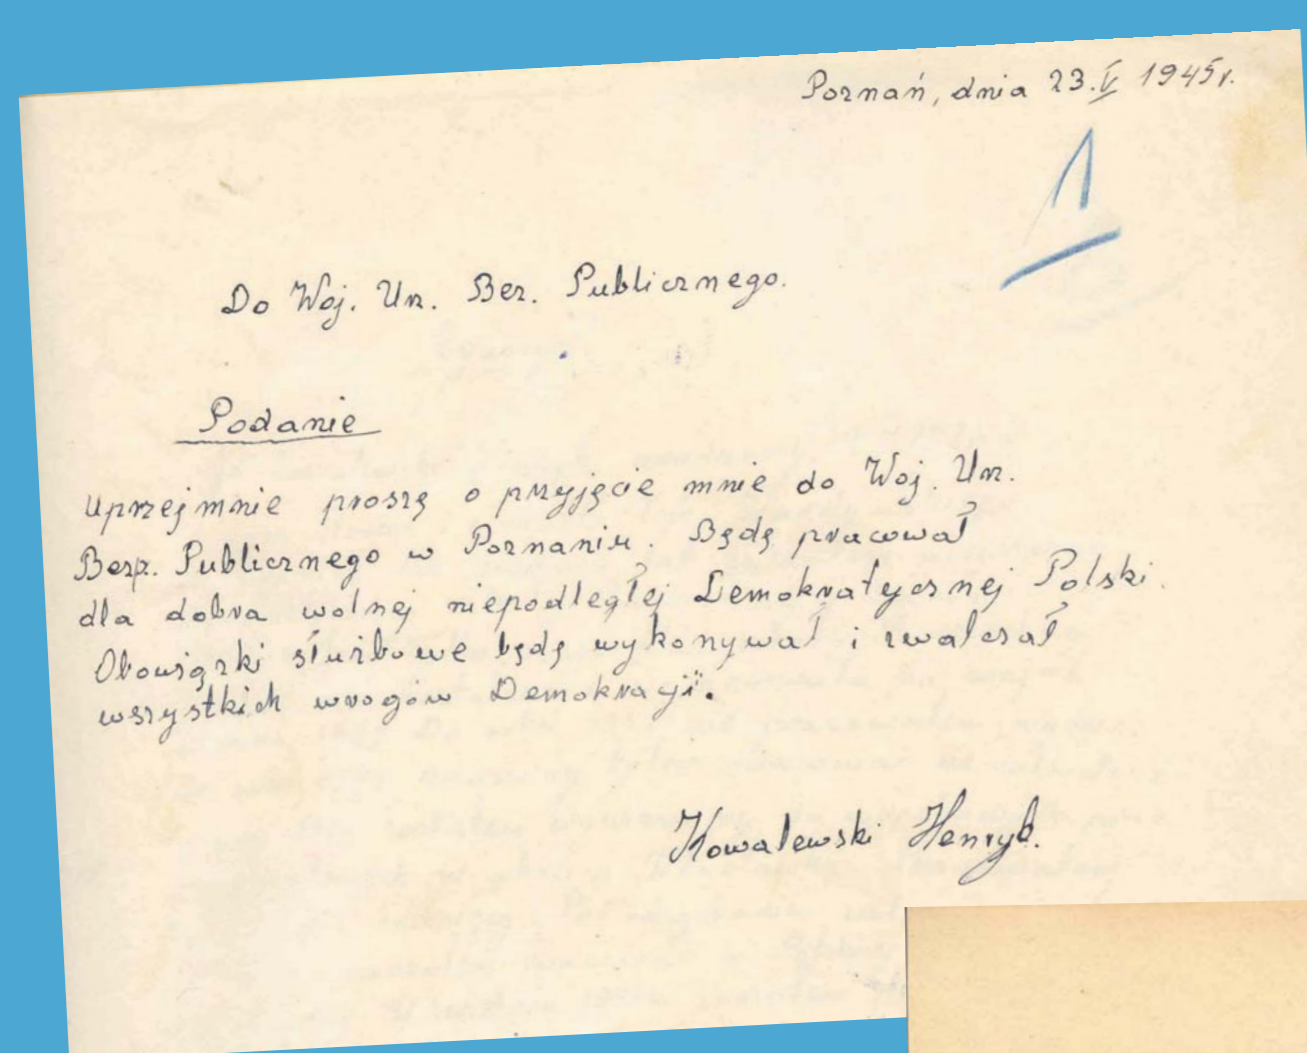 Poznań, dnia 23.V 1945r.
1
Do Woj. Urz. Bez. Publicznego.
Podanie
Uprzejmnie proszę o przyjęcie mnie do Woj. Urz.
Bezp. Publicznego w Poznaniu. Będę pracował
dla dobra wolnej niepodległej Demokratycznej Polski.
Obowiązki służbowe będę wykonywał i zwalczał
wszystkich wrogów Demokracji.
Kowalewski Henryk.